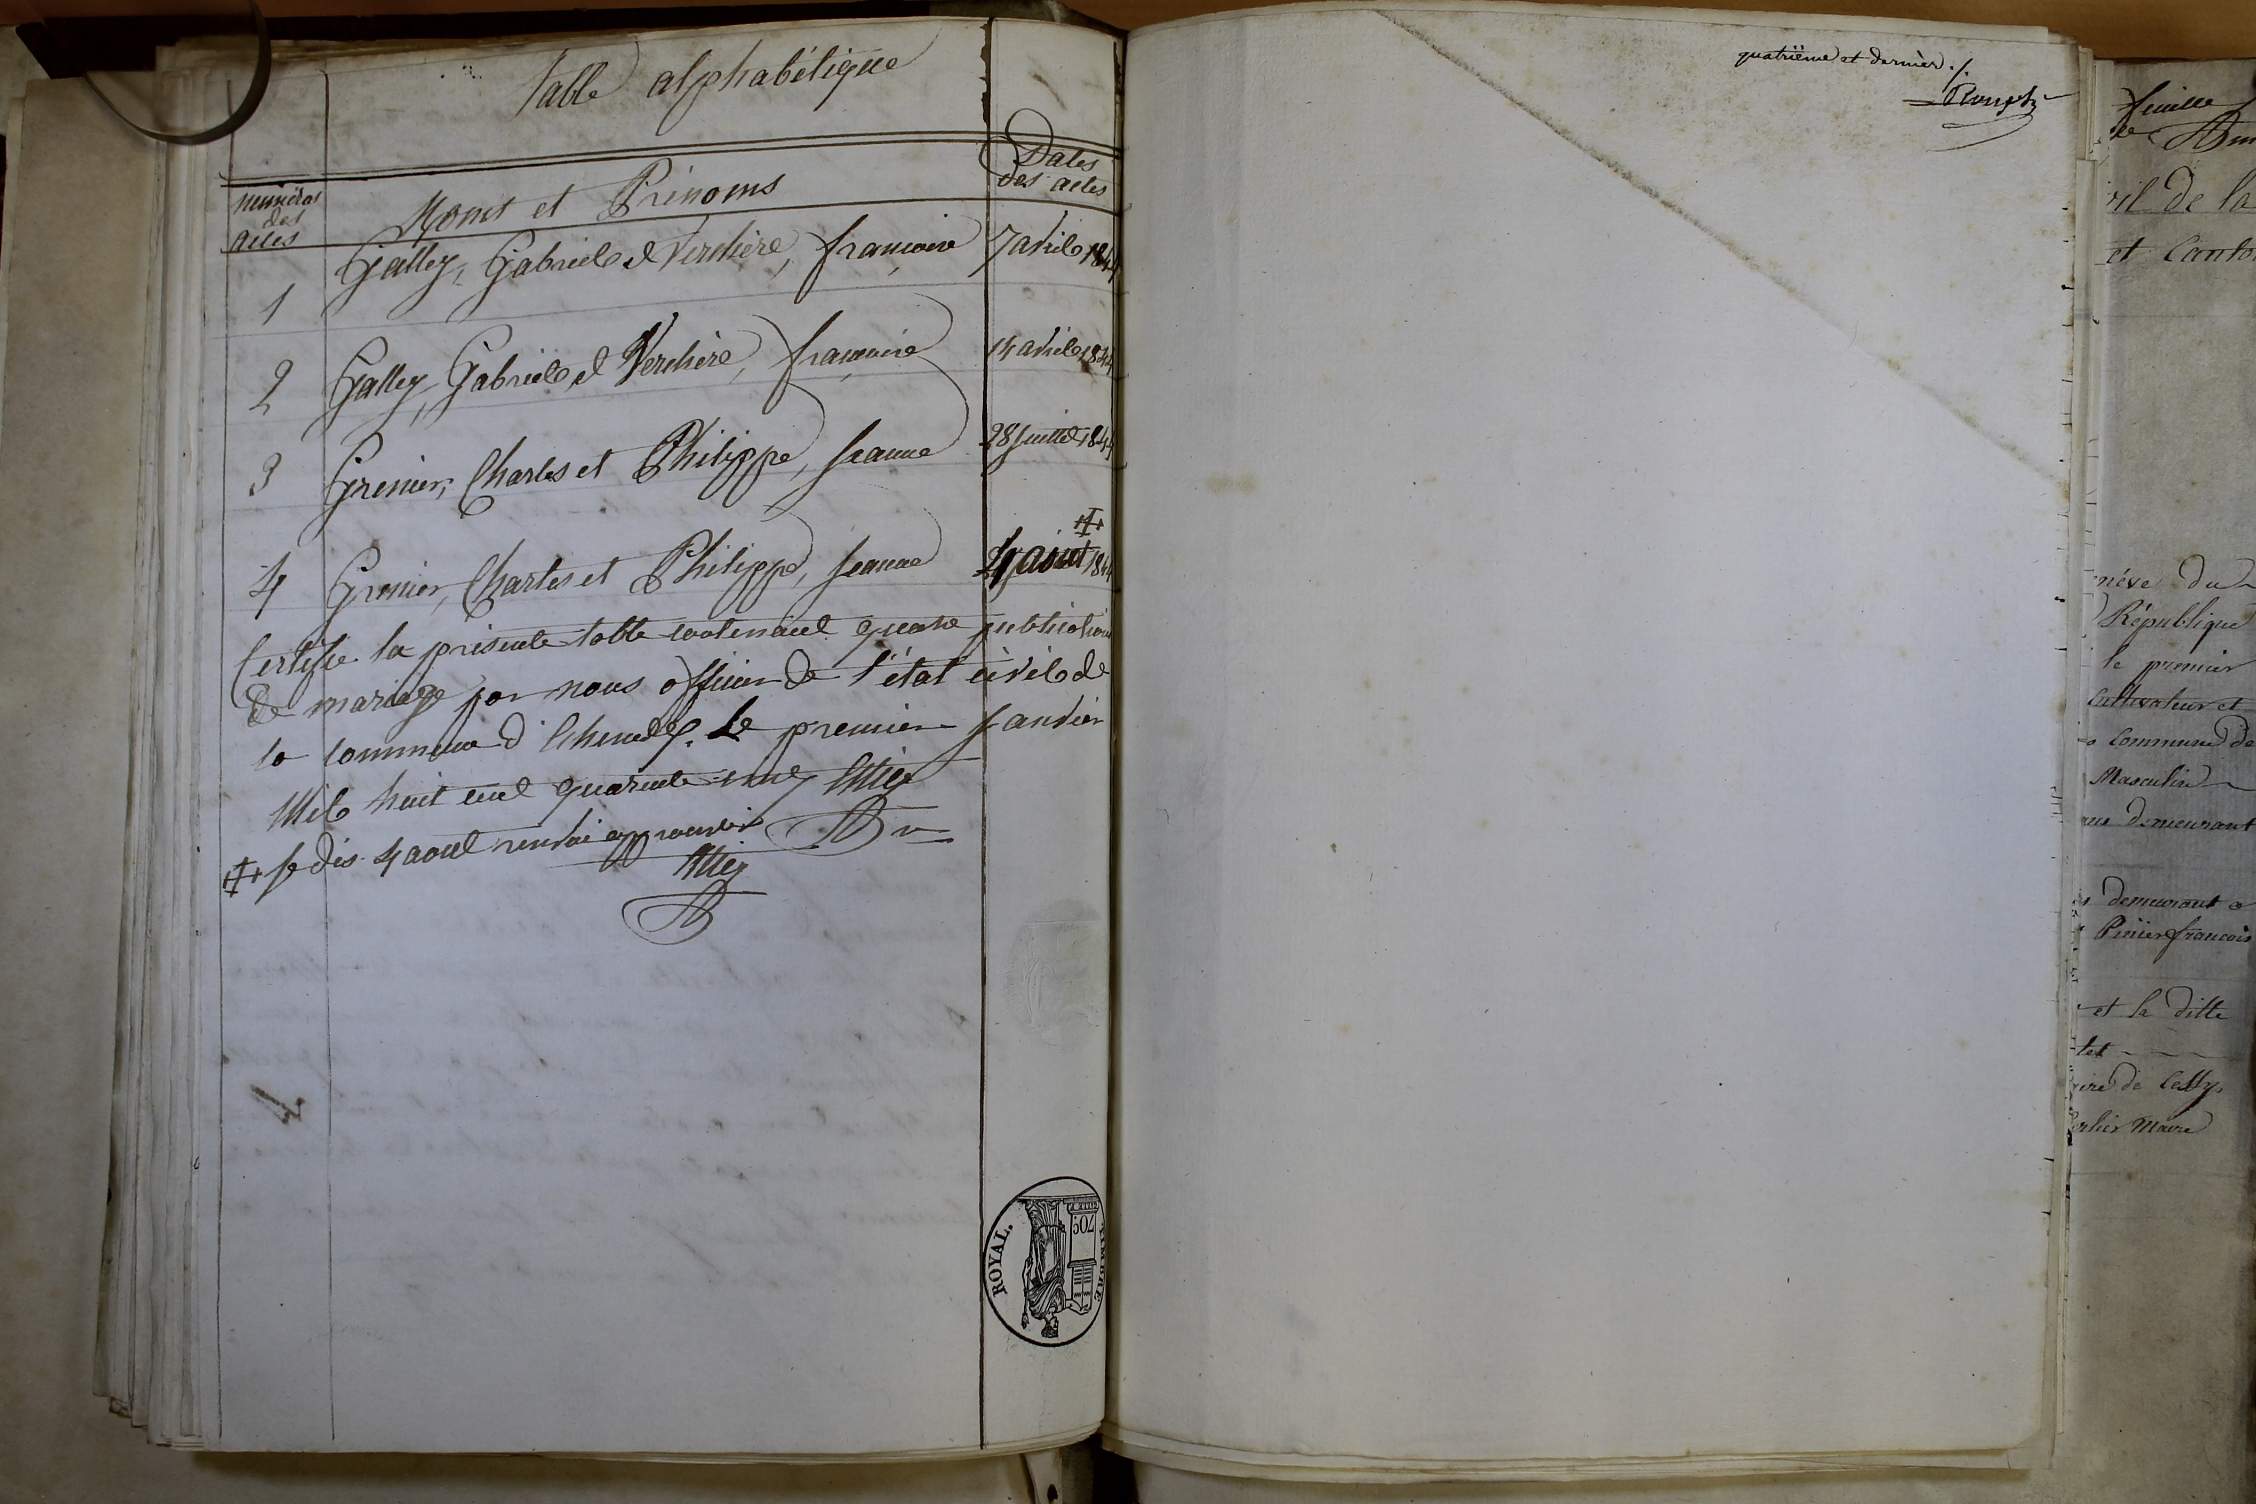 Table alphabétique
numéros des actes
Noms et Prénoms
Dates des actes
1 Galley, Gabriel et Verchère, françoise 7 avril 1844
2 Galley, Gabriel et Verchère, françoise 14 avril 1844
3 Grenier, Charles et Philippe, jeanne 28 juillet 1844
4 Grenier, Charles et Philippe, jeanne 4 aout 1844
Certifie la présente table contenant quatre publications
de mariage par nous officier de l'état civil de
la commune d' Le premier janvier
Mil huit cent quarante cinq
je dis 4 aout renvoi approuvé
ROYAL.
TIMBRE
70c
quatrième et dernier ./.
feuille
vil de la
et Canto
nève du
République
le premier
Cultivateur et
commune de
Masculin
demeurant
demeurant a
françois
et la ditte
tet
ire de Cessy
Maire